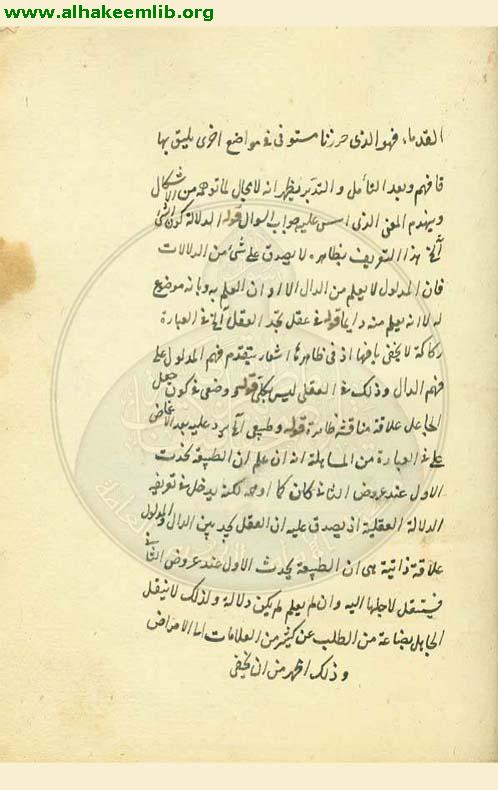 www.alhakeemlib.org
القدماء فهو الذي حررنا مستوفى في مواضع اخرى يليق بها
فافهم وبعد التأمل والتدبر يظهر انه لا مجال لما توهمه من الاشكال
وينهدم المعنى الذي اسس عليه جواب السوال قوله الدلالة كون الشئ
آلخ هذا التعريف بظاهره لا يصدق على شئ من الدلالات
فان المدلول لا يعلم من الدال الا اوان العلم به وبانه موضوع
له لا انه يعلم منه دايما قوله في عقل يجد العقل آلخ في العبارة
ركاكة لا يخفى فافهم اذ في ظاهرها اشعار بتقدم فهم المدلول على
فهم الدال وذلك في العقلي ليس بكلي قوله وضعي في كون جعل
الجاعل علاقة مناقشة ظاهرة قوله وطبيعي آلخ يرد عليه بعد الاغماض
على في العبارة من المساهلة انه ان علم ان الطبيعة يحدث
الاول عند عروض الثاني كان كما اوهمه لكنه يدخل في تعريف
الدلالة العقلية اذ يصدق عليه ان العقل يجد بين الدال والمدلول
علاقة ذاتية هي ان الطبيعة يحدث الاول عند عروض الثاني
فينتقل لاجلها اليه وان لم يعلم لم يكن دلالة ولذلك لا ينتقل
الجاهل بصناعة من الطلب عن كثير من العلامات الى الامراض
وذلك اظهر من ان يخفى